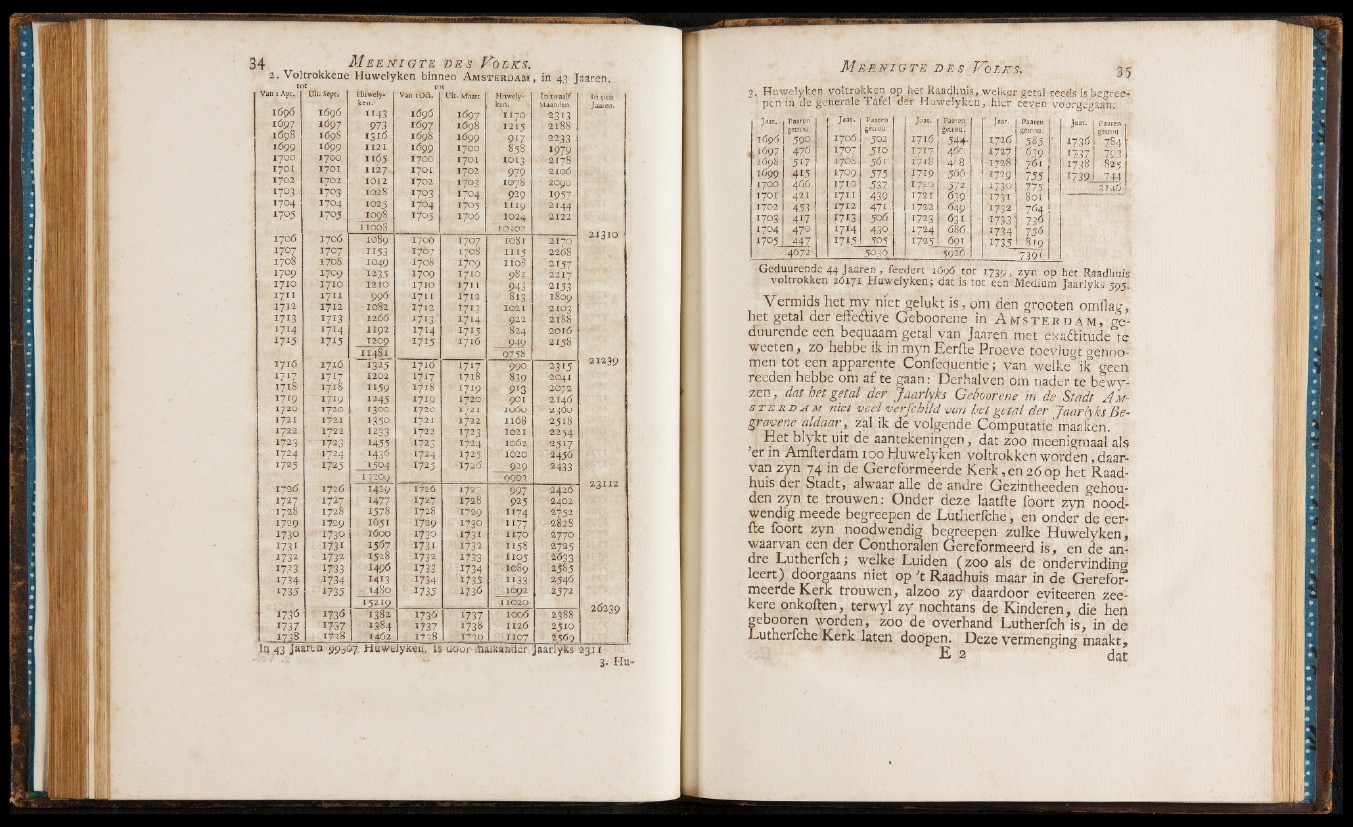 34 MEENIGTE DES VOLKS.
2. Voltrokkene Huwelyken binnen AMSTERDAM, in 43 Jaaren.
tot tot
Van 1 Apr. Ult. Sept. Huwely-ken. Van 1 Oct. Ult. Maart Huwely-ken. In twaalf Maanden. In tien Jaaren.
1696 1696 1143 1696 1697 1170 2313
1697 1697 973 1697 1698 1215 2188
1698 1698 1316 1698 1699 917 2233
1699 1699 1121 1699 1700 858 1979
1700 1700 1165 1700 1701 1013 2178
1701 1701 1127 1701 1702 979 2106
1702 1702 1012 1702 1703 1078 2090
1703 1703 1028 1703 1704 929 1957
1704 1704 1025 1704 1705 1119 2144
1705 1705 1098 1705 1706 1024 2122
11008 10302 21310
1706 1706 1089 1706 1707 1081 2170
1707 1707 1153 1707 1708 1115 2268
1708 1708 1049 1708 1709 1108 2157
1709 1709 1235 1709 1710 982 2217
1710 1710 1210 1710 1711 943 2153
1711 1711 996 1711 1712 813 1809
1712 1712 1082 1712 1713 1021 2103
1713 1713 1266 1713 1714 922 2188
1714 1714 1192 1714 1715 824 2016
1715 1715 1209 1715 1716 949 2158
11481 9758 21239
1716 1716 1325 1716 1717 990 2315
1717 1717 1202 1717 1718 839 2041
1718 1718 1159 1718 1719 913 2072
1719 1719 1245 1719 1720 901 2146
1720 1720 1300 1720 1721 1060 2360
1721 1721 1350 1721 1722 1168 2518
1722 1722 1233 1722 1723 1021 2254
1723 1723 1455 1723 1724 1062 2517
1724 1724 1436 1724 1725 1020 2456
1725 1725 1504 1725 1726 929 2433
13209 9903 23112
1726 1726 1429 1726 1727 997 2426
1727 1727 1477 1727 1728 925 2402
1728 1728 1578 1728 1729 1174 2752
1729 1729 1651 1729 1730 1177 2828
1730 1730 1600 1730 1731 1170 2770
1731 1731 1567 1731 1732 1158 2725
1732 1732 1528 1732 1733 1105 2633
1733 1733 1496 1733 1734 1089 2585
1734 1734 1413 1734 1735 1133 2546
1735 1735 1480 1735 1736 1092 2572
15219 11020 26239
1736 1736 1382 1736 1737 1006 2388
1737 1737 1384 1737 1738 1126 2510
1738 1738 1462 1738 1739 1107 2569
In 43 Jaaren 99367 Huwelyken, is door malkander Jaarlyks 2311
3. Hu-
MEENIGTE DES VOLKS. 35
3. Huwelyken voltrokken op het Raadhuis, welker getal reeds is begree-
pen in de generale Tafel der Huwelyken, hier eeven voorgegaan.
Jaar. Paaren getrou. Jaar. Paaren getrou. Jaar. Paaren getrou. Jaar. Paaren getrou. Jaar. Paaren getrou.
1696 590 1706 502 1716 544 1726 585 1736 784
1697 476 1707 510 1717 460 1727 639 1737 793
1698 517 1708 561 1718 488 1728 761 1738 825
1699 415 1709 575 1719 566 1729 755 1739 744
1700 466 1710 537 1720 572 1730 775 3146
1701 421 1711 439 1721 639 1731 801
1702 453 1712 471 1722 649 1732 764
1703 417 1713 506 1723 631 1733 736
1704 470 1714 430 1724 686 1734 756
1705 447 1715 505 1725 691 1735 819
4672 5036 5926 7391
Geduurende 44 Jaaren, seedert 1696 tot 1739, zyn op het Raadhuis
voltrokken 26171 Huwelyken; dat is tot een Medium Jaarlyks 595.
Vermids het my niet gelukt is, om den grooten omslag,
het getal der effective Geboorene in AMSTERDAM, ge-
duurende een bequaam getal van Jaaren met exactitude te
weeten, zo hebbe ik in myn Eerste Proeve toevlugt genoo-
men tot een apparente Consequentie; van welke ik geen
reeden hebbe om af te gaan: Derhalven om nader te bewy-
zen, dat het getal der Jaarlyks Geboorene in de Stadt AM-
STERDAM niet veel verschild van het getal der Jaarlyks Be-
gravene aldaar, zal ik de volgende Computatie maaken.
Het blykt uit de aantekeningen, dat zoo meenigmaal als
'er in Amsterdam 100 Huwelyken voltrokken worden, daar-
van zyn 74 in de Gereformeerde Kerk, en 26 op het Raad-
huis der Stadt, alwaar alle de andre Gezintheeden gehou-
den zyn te trouwen: Onder deze laatste soort zyn nood-
wendig meede begreepen de Luthersche, en onder de eer-
ste soort zyn noodwendig begreepen zulke Huwelyken,
waarvan een der Conthoralen Gereformeerd is, en de an-
dre Luthersch; welke Luiden (zoo als de ondervinding
leert) doorgaans niet op 't Raadhuis maar in de Gerefor-
meerde Kerk trouwen, alzoo zy daardoor eviteeren zee-
kere onkosten, terwyl zy nochtans de Kinderen, die hen
gebooren worden, zoo de overhand Luthersch is, in de
Luthersche Kerk laten doopen. Deze vermenging maakt,
E 2 dat